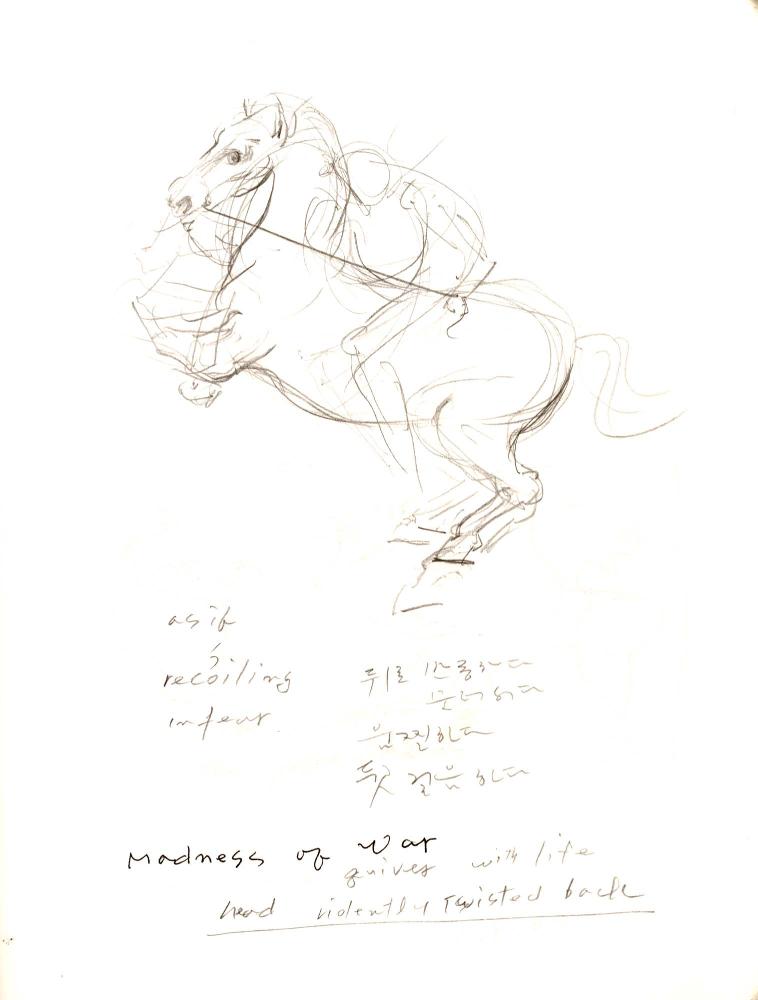 as if
recoiling
in fear
뒤로 반동하다
움찔하다
뒷걸음하다
Madness of War
quiver with life
head violently Twisted back